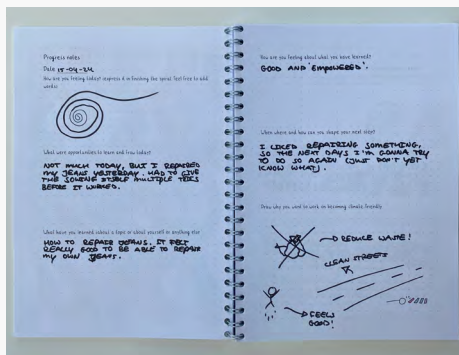 Progress notes
Date 15-04-24
How are you feeling today? (express it in finishing the spiral, feel free to add
words)
What were opportunities to learn and grow today?
NOT MUCH TODAY, BUT I REPAIRED
MY JEANS YESTERDAY. HAD TO GIVE
THE SOWING ITSELF MULTIPLE TRIES
BEFORE IT WORKED.
What have you learned about a topic or about yourself or anything else
HOW TO REPAIR JEANS. IT FELT
REALLY GOOD TO BE ABLE TO REPAIR
MY OWN JEANS.
How are you feeling about what you have learned?
GOOD AND 'EMPOWERED'.
When where and how can you shape your next step?
I LIKED REPAIRING SOMETHING,
SO THE NEXT DAYS I'M GONNA TRY
TO DO SO AGAIN (JUST DON'T YET
KNOW WHAT).
Draw why you want to work on becoming climate friendly
REDUCE WASTE!
CLEAN STREETS
FEEL
GOOD!